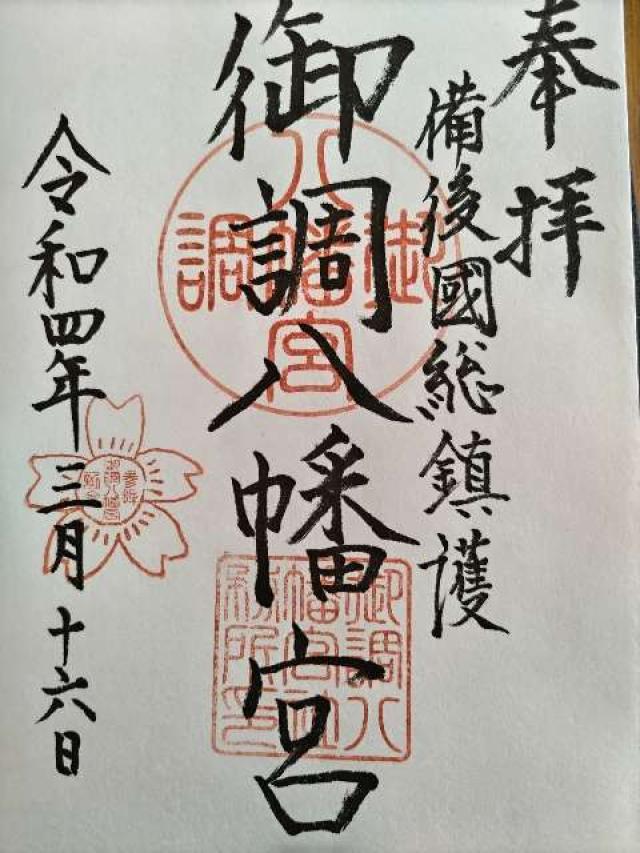 奉拝
備後國総鎮護
御調八幡宮
令和四年三月十六日
御調八幡宮
御調八幡宮社務所印